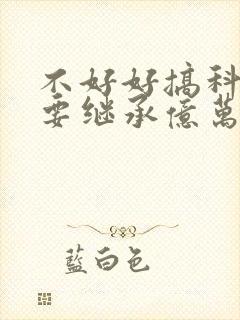 不好好搞科
要继承億萬
藍白色